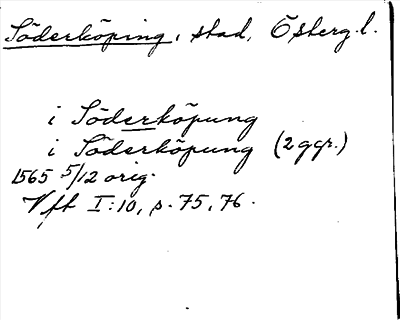 Söderköping, stad, Österg. l.
i Söderköpung
i Söderköpung (2 ggr.)
1565 5/12 orig.
Vft I:10, s. 75, 76.